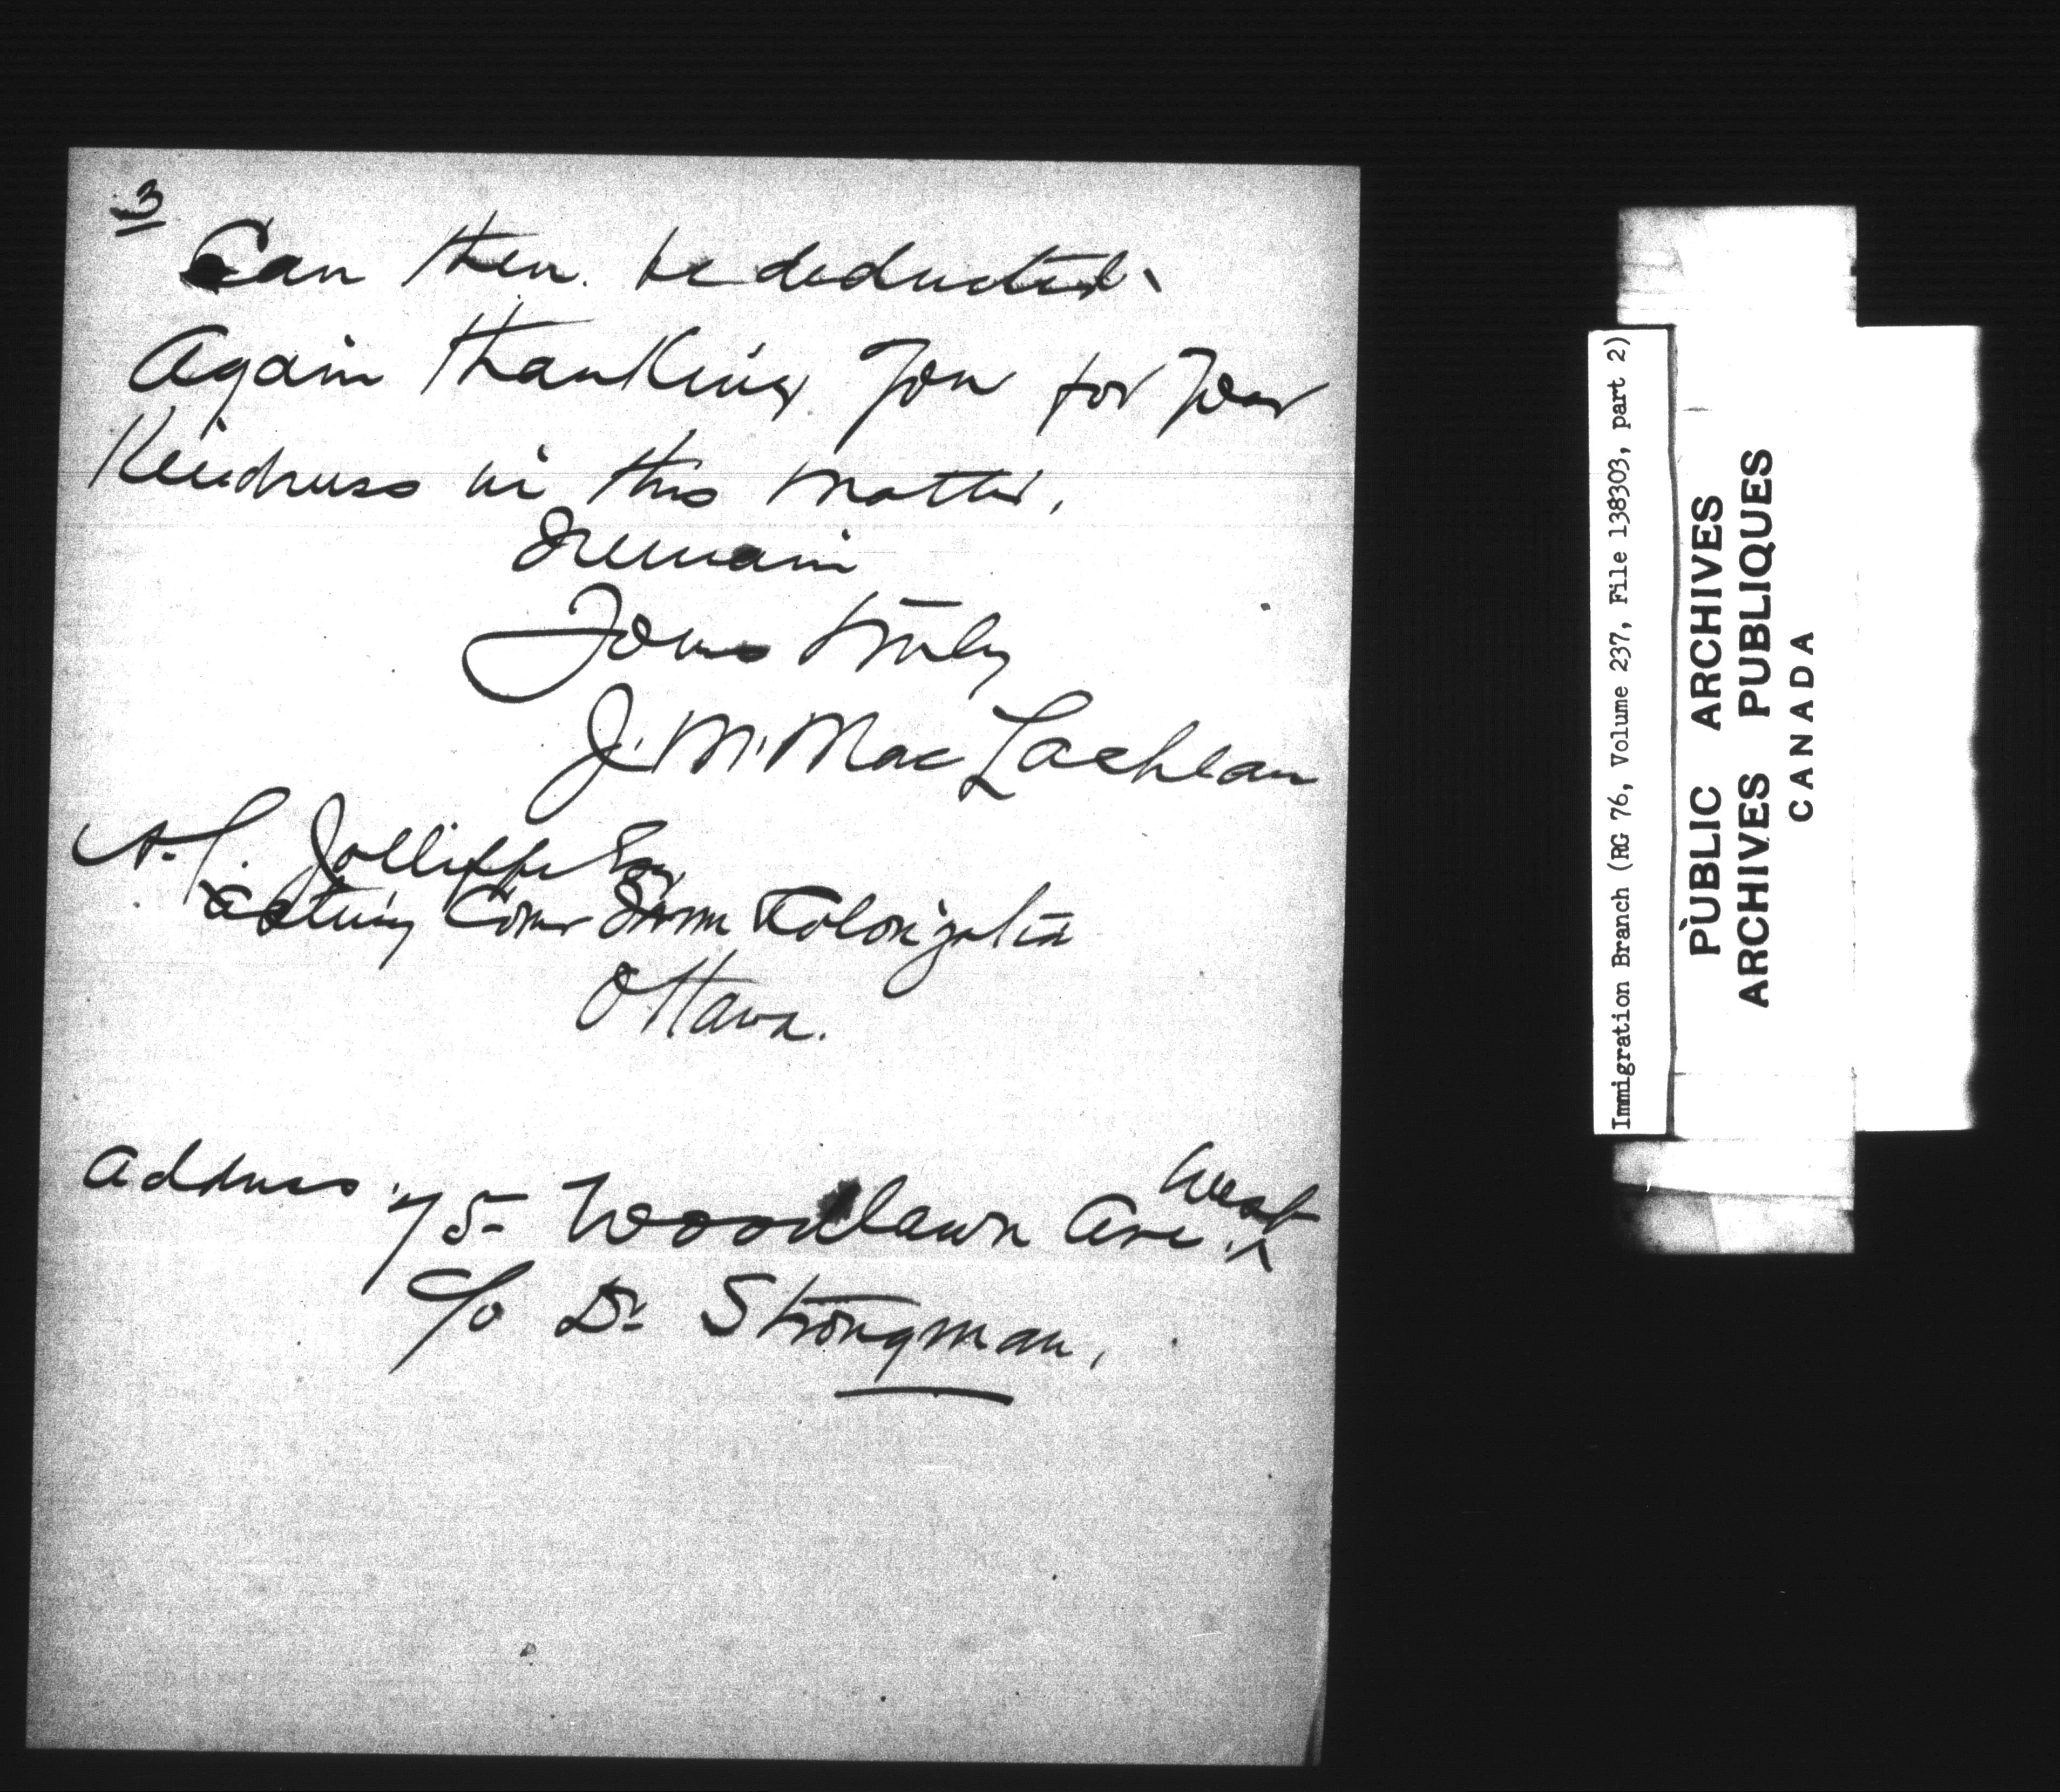 3
Can then be deducted.
Again thanking you for your
Kindness in this matter,
I remain
Yours truly
J. M. MacLachlan
A. L. Jolliffe Esq
Acting Comr Imm & Colonization
Ottawa.
Address 75 Woodlawn Ave. West
c/o Dr Strongman.
Immigration Branch (RG 76, Volume 237, File 138303, part 2)
PUBLIC ARCHIVES
ARCHIVES PUBLIQUES
CANADA